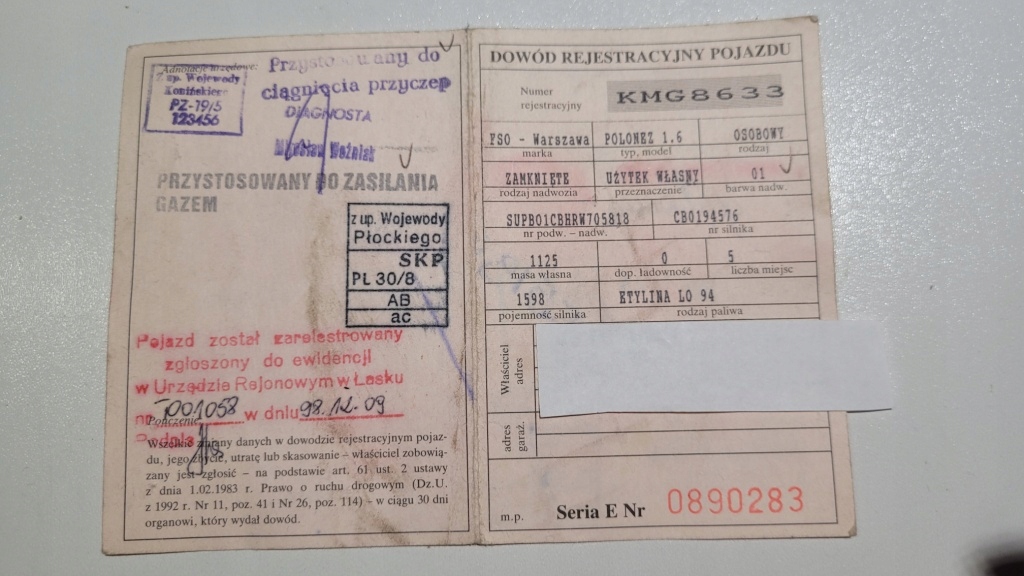 Adnotacje urzędowe:
z up. Wojewody
Konińskiego
PZ-19/5
123456
Przystosowany do
ciągnięcia przyczep
DIAGNOSTA
Mirosław Woźniak
PRZYSTOSOWANY DO ZASILANIA
GAZEM
z up. Wojewody
Płockiego
SKP
PŁ 30/8
AB
ac
Pojazd został zarejestrowany
zgłoszony do ewidencji
w Urzędzie Rejonowym w Łasku
nr P001058 w dniu 98.12.09
Pouczenie:
Wszelkie zmiany danych w dowodzie rejestracyjnym pojaz-
du, jego zbycie, utratę lub skasowanie – właściciel zobowią-
zany jest zgłosić – na podstawie art. 61 ust. 2 ustawy
z dnia 1.02.1983 r. Prawo o ruchu drogowym (Dz.U.
z 1992 r. Nr 11, poz. 41 i Nr 26, poz. 114) – w ciągu 30 dni
organowi, który wydał dowód.
DOWÓD REJESTRACYJNY POJAZDU
Numer
rejestracyjny
KMG8633
FSO - Warszawa POLONEZ 1.6 OSOBOWY
marka typ, model rodzaj
ZAMKNIĘTE UŻYTEK WŁASNY 01
rodzaj nadwozia przeznaczenie barwa nadw.
SUPB01CBHRW705818 CB0194576
nr podw. – nadw. nr silnika
1125 0 5
masa własna dop. ładowność liczba miejsc
1598 ETYLINA LO 94
pojemność silnika rodzaj paliwa
Właściciel
adres
adres
garaż.
m.p. Seria E Nr 0890283